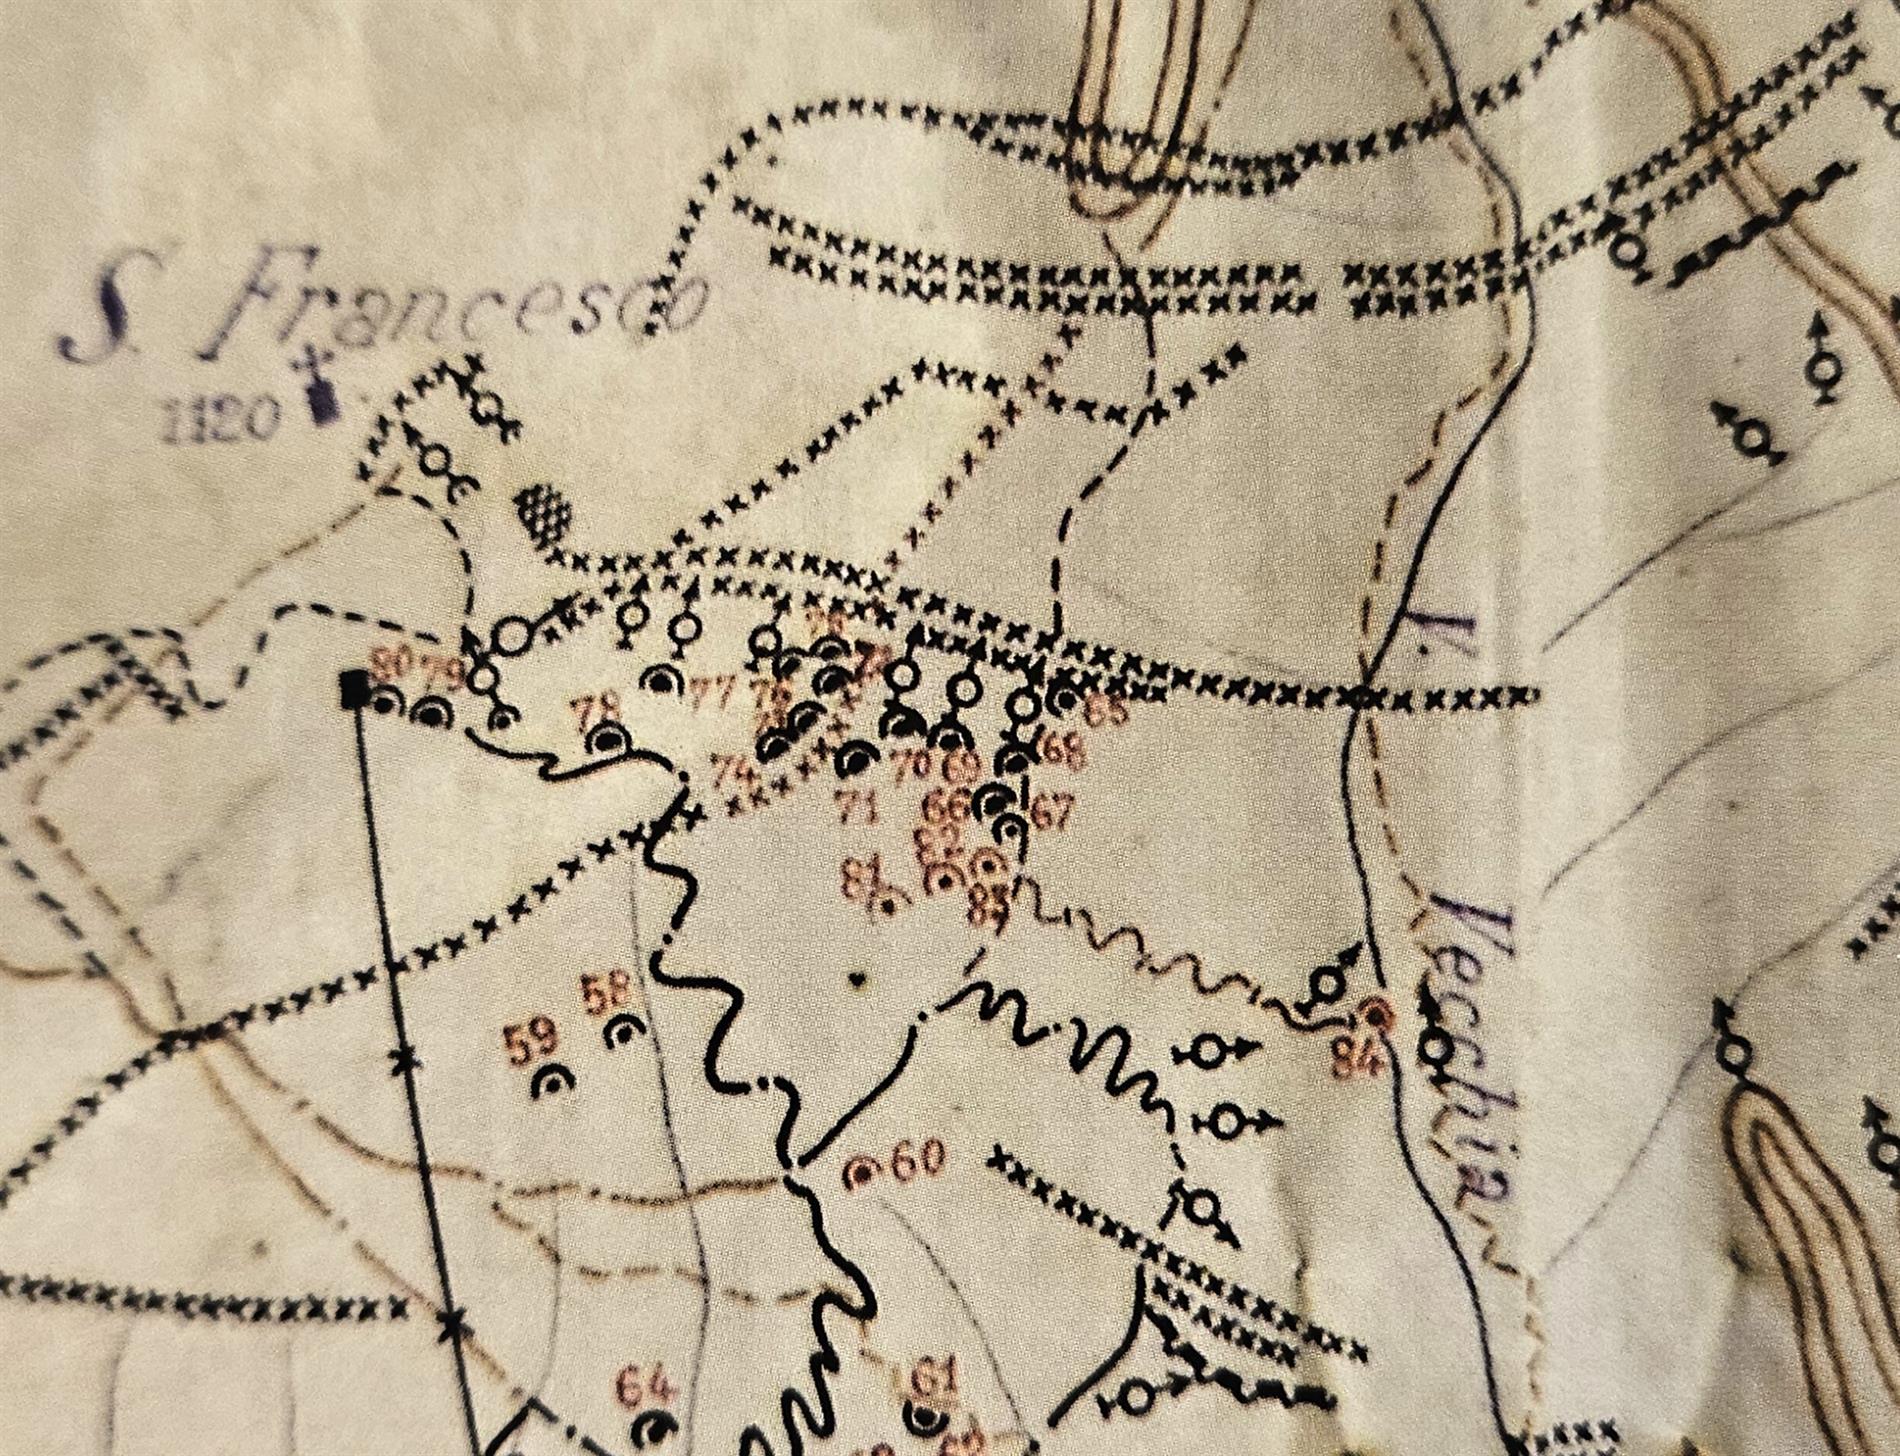 S. Francesco
1120
V. Vecchia
80 79
78
77
76
74
85
70 69
68
71
66
67
82
81
83
58
59
84
60
64
61